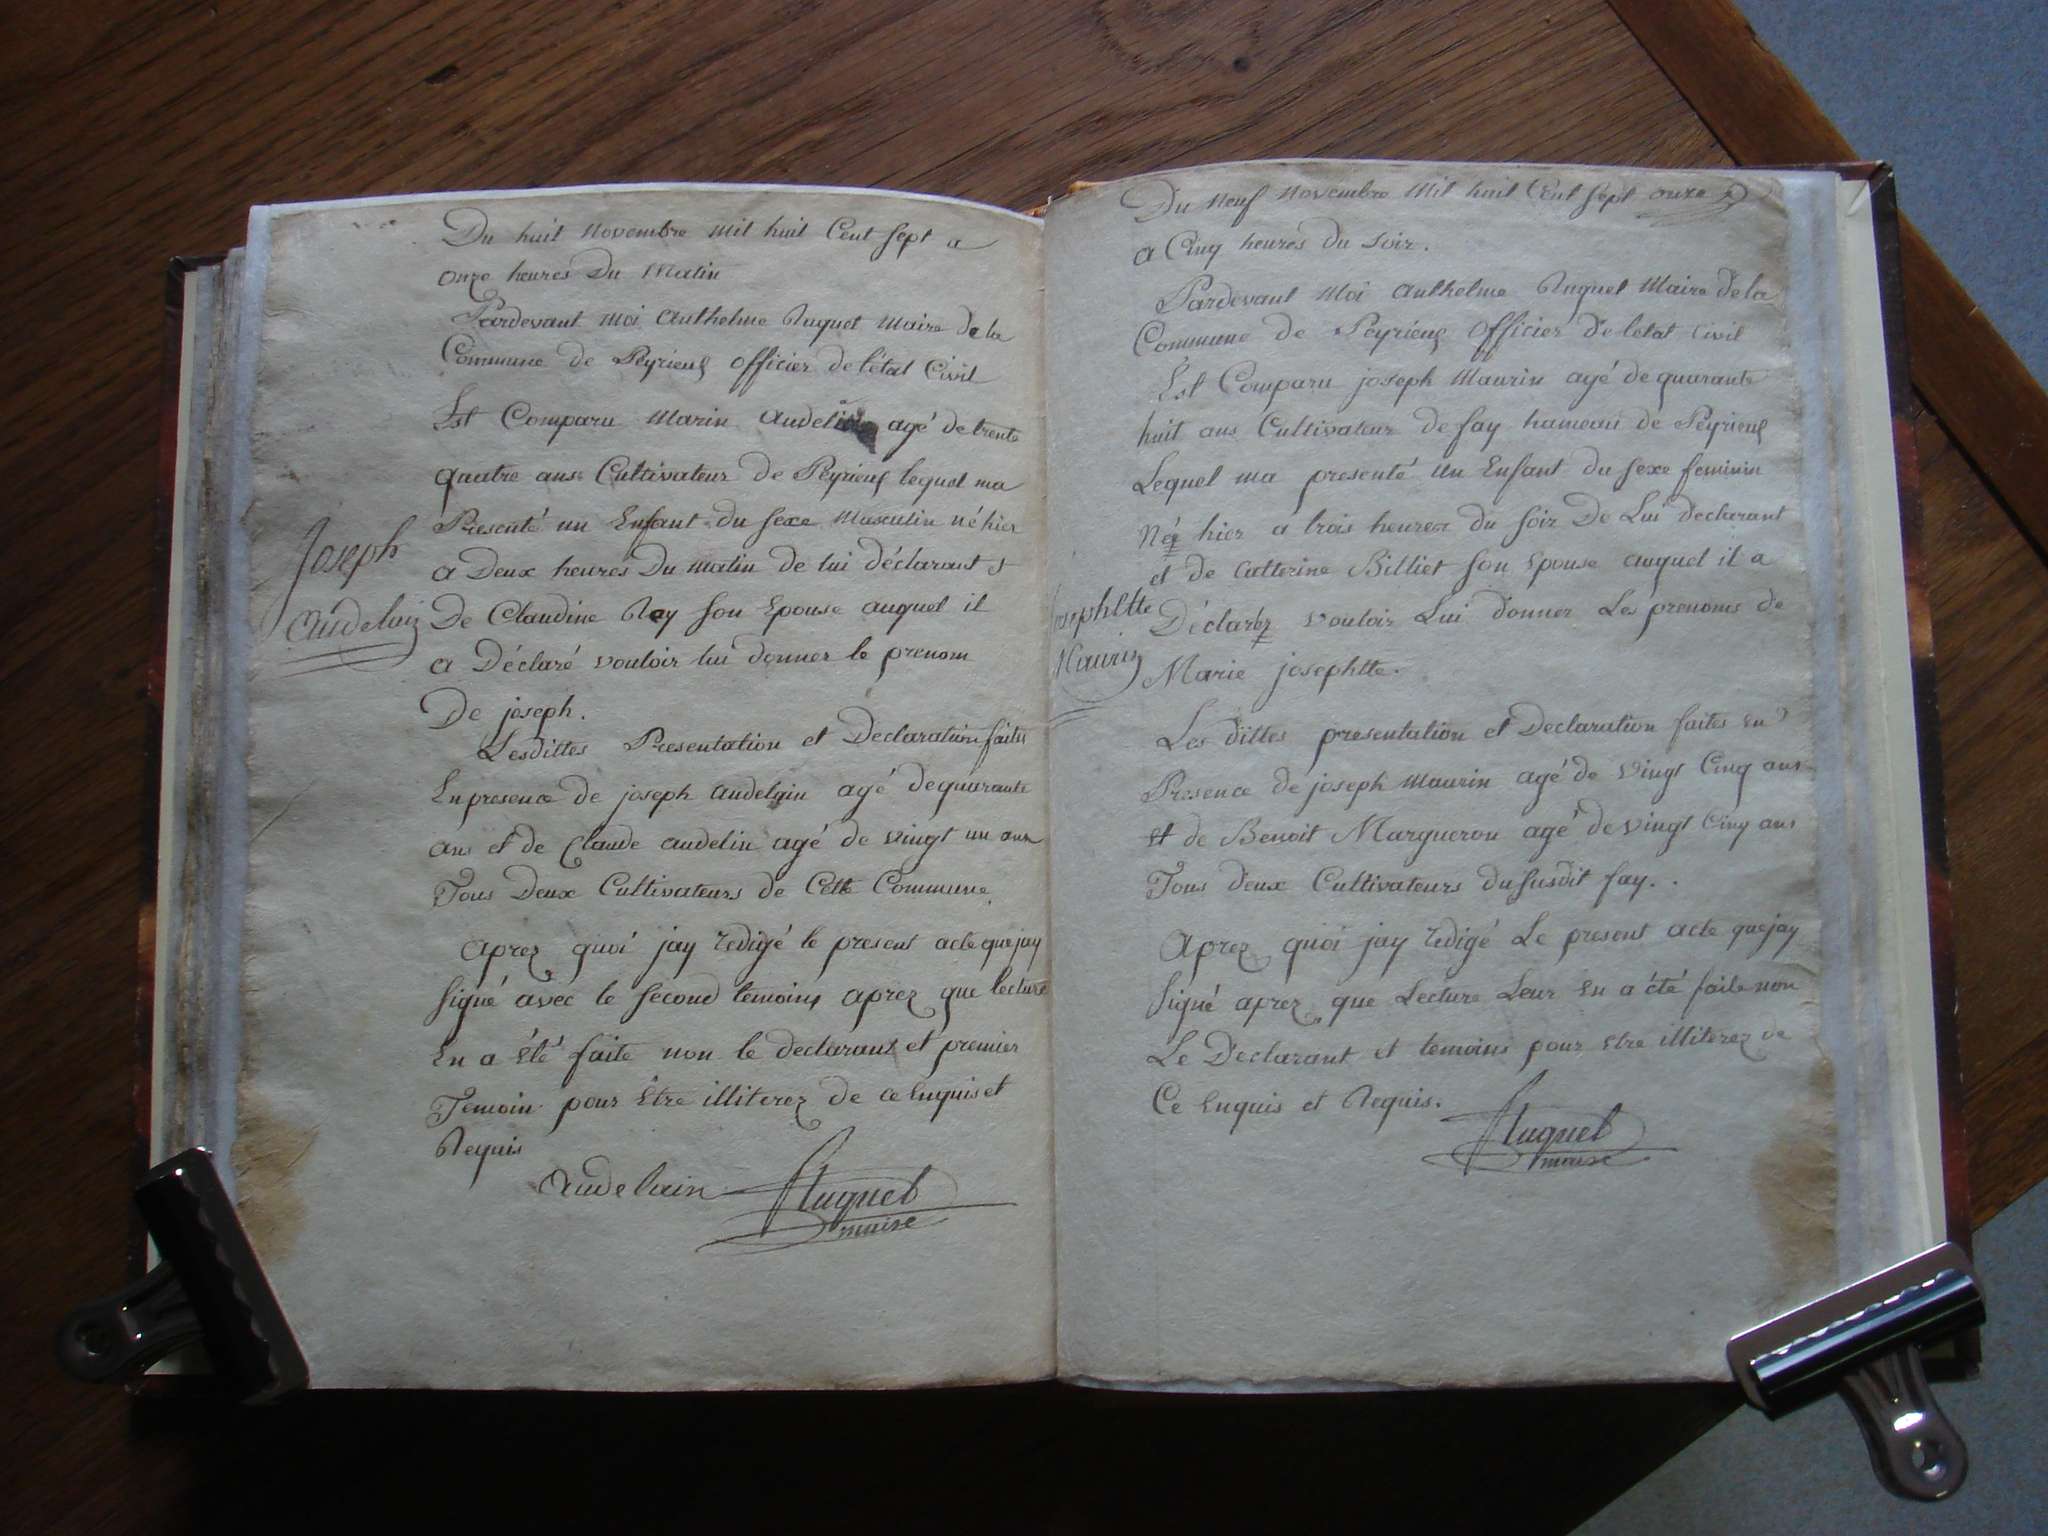 Du huit Novembre mil huit Cent sept a
onze heures Du Matin
Pardevant moi Anthelme Huguet Maire de la
Commune de Peyrieux officier de l'état Civil
Est Comparu Marin Audelin agé de trente
quatre ans Cultivateur de Peyrieux lequel ma
Presenté un Enfant du sexe Masculin né hier
a Deux heures Du matin de lui déclarant et
De Claudine Rey son Epouse auquel il
a Déclaré vouloir lui donner le prenom
De joseph.
Joseph
Audelain
Lesdittes Presentation et Declaration faites
En presence de joseph Audelain agé de quarante
ans et de Claude audelin agé de vingt un ans
Tous Deux Cultivateurs de Cette Commune.
Aprez quoi jay redigé le present acte que jay
signé avec le second temoins aprez que lecture
En a été faite non le declarant et premier
Temoin pour Etre illiterez de ce Enquis et
Requis
Audelain Huguet
maire
Du neuf Novembre mil huit Cent sept onze
a Cinq heures du soir.
Pardevant Moi Anthelme Huguet Maire de la
Commune de Peyrieux officier de l'etat Civil
Est Comparu joseph Maurin agé de quarante
huit ans Cultivateur de fay hameau de Peyrieux
Lequel ma presenté un Enfant du sexe feminin
Née hier a trois heures du soir De Lui declarant
et de Catterine Billiet son Epouse auquel il a
Déclarez vouloir Lui donner Les prenoms de
Marie josephtte.
josephtte
Maurin
Les dittes presentation et Declaration faites en
Presence de joseph Maurin agé de vingt Cinq ans
et de Benoit Margueron agé de vingt Cinq ans
Tous deux Cultivateurs du susdit fay.
Aprez quoi jay redigé Le present acte que jay
signé aprez que Lecture Leur En a été faite non
Le Declarant et temoins pour Etre illiterez de
Ce Enquis et Requis.
Huguet
maire